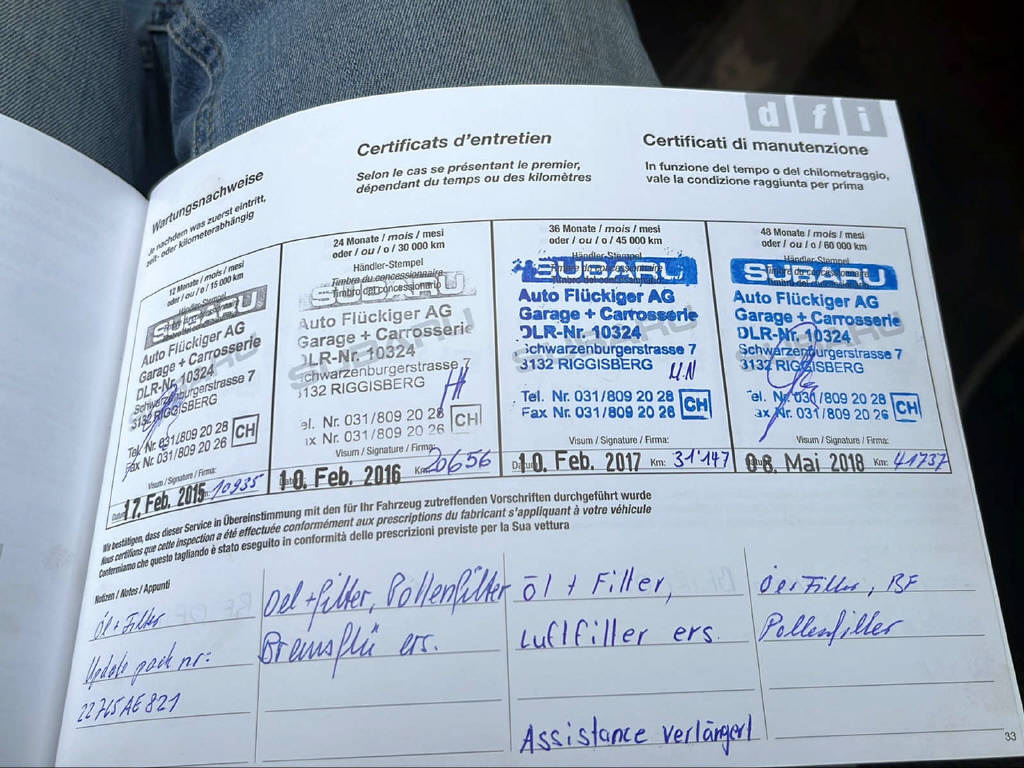 d f i
Wartungsnachweise
Je nachdem was zuerst eintritt,
zeit- oder kilometerabhängig
Certificats d'entretien
Selon le cas se présentant le premier,
dépendant du temps ou des kilomètres
Certificati di manutenzione
In funzione del tempo o del chilometraggio,
vale la condizione raggiunta per prima
12 Monate / mois / mesi
oder / ou / o / 15 000 km
Händler-Stempel
SUBARU
Auto Flückiger AG
Garage + Carrosserie
DLR-Nr. 10324
Schwarzenburgerstrasse 7
3132 RIGGISBERG
Tel. Nr. 031/809 20 28
Fax Nr. 031/809 20 26
CH
Visum / Signature / Firma:
17. Feb. 2015 10935
24 Monate / mois / mesi
oder / ou / o / 30 000 km
Händler-Stempel
Timbre du concessionnaire
Timbro del concessionario
SUBARU
Auto Flückiger AG
Garage + Carrosserie
DLR-Nr. 10324
Schwarzenburgerstrasse 7
3132 RIGGISBERG
el. Nr. 031/809 20 28
ax Nr. 031/809 20 26
CH
Visum / Signature / Firma:
10. Feb. 2016 Km: 20656
36 Monate / mois / mesi
oder / ou / o / 45 000 km
Händler-Stempel
Timbre du concessionnaire
SUBARU
Auto Flückiger AG
Garage + Carrosserie
DLR-Nr. 10324
Schwarzenburgerstrasse 7
3132 RIGGISBERG
Tel. Nr. 031/809 20 28
Fax Nr. 031/809 20 26
CH
Visum / Signature / Firma:
10. Feb. 2017 Km: 31'147
48 Monate / mois / mesi
oder / ou / o / 60 000 km
Händler-Stempel
Timbre du concessionnaire
SUBARU
Auto Flückiger AG
Garage + Carrosserie
DLR-Nr. 10324
Schwarzenburgerstrasse 7
3132 RIGGISBERG
el. Nr. 031/809 20 28
ax Nr. 031/809 20 26
CH
Visum / Signature / Firma:
08. Mai 2018 Km: 41737
Wir bestätigen, dass dieser Service in Übereinstimmung mit den für Ihr Fahrzeug zutreffenden Vorschriften durchgeführt wurde
Nous certifions que cette inspection a été effectuée conformément aux prescriptions du fabricant s'appliquant à votre véhicule
Confermiamo che questo tagliando è stato eseguito in conformità delle prescrizioni previste per la Sua vettura
Notizen / Notes / Appunti
Öl + Filter
Update pack nr:
22765AE821
Oel + filter, Pollenfilter
Bremsflü ers.
Öl + Filter,
Luftfilter ers.
Assistance verlängert
Oel Filter, BF
Pollenfilter
33